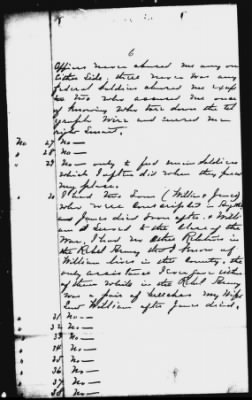 6
Officer never abused me any on
either Side, there never was any
federal Soldiers abused me except
two who accused me once
of knowing who tore down the tel
egraph Wire and cursed me
right Smart.
No 27 No—
" 28 No—
" 29 No— only to feed some Soldiers
which I often did when they passed
my place.
" 30 I had two Sons (William & James)
who were Conscripted in
and James died Soon after. & Will-
iam Served to the Close of the
War, I had no other Relatives in
the Rebel Army that I know of
William lives in this County, the
only assistance I ever gave either
of them while in the Rebel Army
was a pair of my Wife
Sent William after James died.
" 31 No—
" 32 No—
" 33 No—
" 34 No—
" 35 No—
" 36 No—
" 37 No—
" 38 No—